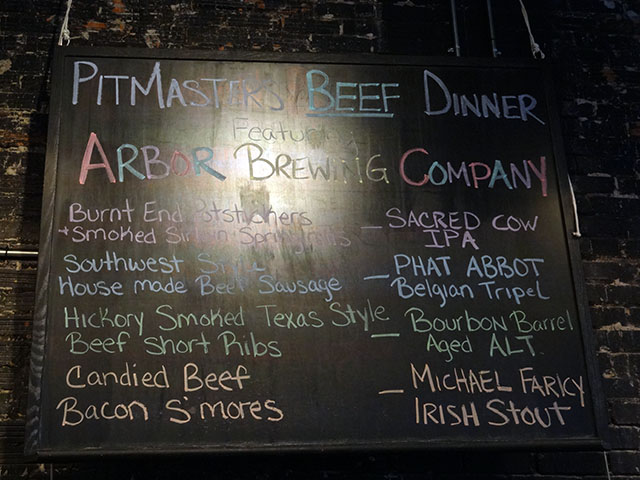 PITMASTERS BEEF DINNER
Featuring
ARBOR BREWING COMPANY
Burnt End Potstickers
+ Smoked Sirloin Springrolls – SACRED COW
IPA
Southwest Style
House made Beef Sausage – PHAT ABBOT
Belgian Tripel
Hickory Smoked Texas Style
Beef Short Ribs – Bourbon Barrel
Aged ALT.
Candied Beef
Bacon S'mores – MICHAEL FARICY
IRISH STOUT